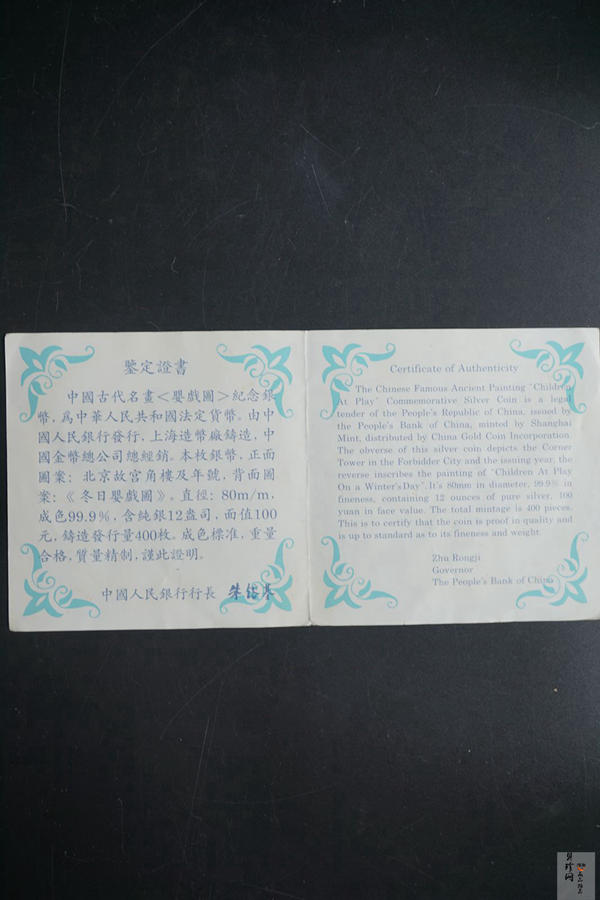 鑒定證書
中國古代名畫＜嬰戲圖＞紀念銀
幣，爲中華人民共和國法定貨幣。由中
國人民銀行發行，上海造幣廠鑄造，中
國金幣總公司總經銷。本枚銀幣，正面
圖案：北京故宮角樓及年號，背面圖
案：《冬日嬰戲圖》。直徑：80m/m，
成色99.9％，含純銀12盎司，面值100
元，鑄造發行量400枚。成色標准，重量
合格，質量精制，謹此證明。
中國人民銀行行長 朱鎔基
Certificate of Authenticity
The Chinese Famous Ancient Painting "Children
At Play" Commemorative Silver Coin is a legal
tender of the People's Republic of China, issued by
the People's Bank of China, minted by Shanghai
Mint, distributed by China Gold Coin Incorporation.
The obverse of this silver coin depicts the Corner
Tower in the Forbidder City and the issuing year, the
reverse inscribes the painting of "Children At Play
On a Winter's Day". It's 80mm in diameter, 99.9% in
fineness, containing 12 ounces of pure silver, 100
yuan in face value. The total mintage is 400 pieces.
This is to certify that the coin is proof in quality and
is up to standard as to its fineness and weight.
Zhu Rongji
Governor
The People's Bank of China